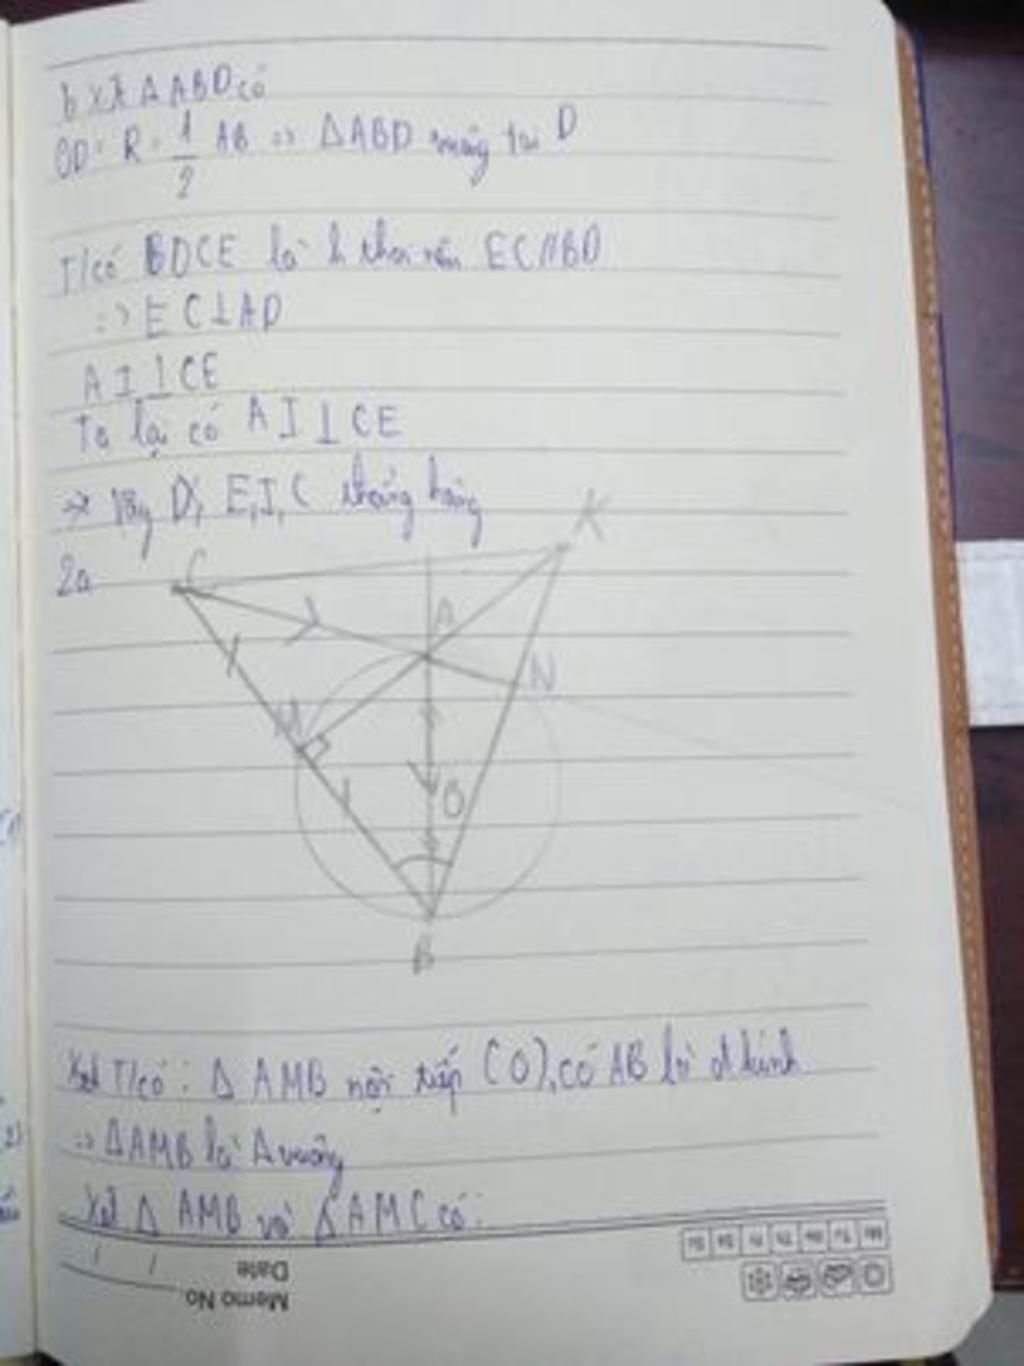 b xét Δ ABD có
OD = R = 1/2 AB => ΔABD vuông tại D
T/có BDCE là h thoi nên EC//BD
=> EC⊥AD
AI⊥CE
Ta lại có AI⊥CE
=> Vậy D, E, I, C thẳng hàng
2a
C
K
A
N
M
O
B
Xét T/có : Δ AMB nội tiếp (O), có AB là đ kính
=> ΔAMB là Δ vuông
Xét Δ AMB và ΔAMC có :
Memo No.
Date
Mo Tu We Th Fr Sa Su